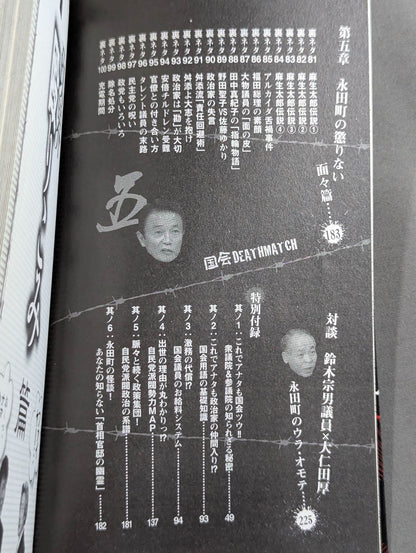 第五章 永田町の懲りない
面々篇……183
裏ネタ81 麻生太郎伝説①
裏ネタ82 麻生太郎伝説②
裏ネタ83 麻生太郎伝説③
裏ネタ84 麻生太郎伝説④
裏ネタ85 アルカイダ舌禍事件
裏ネタ86 福田総理の素顔
裏ネタ87 大物議員の「面の皮」
裏ネタ88 田中真紀子の「指輪物語」
裏ネタ89 野田聖子VS佐藤ゆかり
裏ネタ90 政治家の失言
裏ネタ91 舛添流「責任回避術」
裏ネタ92 舛添よ大志を抱け
裏ネタ93 政治家は「勘」が大切
裏ネタ94 安倍チルドレン受難
裏ネタ95 官僚との付き合い方
裏ネタ96 タレント議員の末路
裏ネタ97 民主党の呪い
裏ネタ98 政党もいろいろ
裏ネタ99 除名処分
裏ネタ100 充電期間
五
国会DEATHMATCH
対談 鈴木宗男議員×大仁田厚
永田町のウラ・オモテ……225
特別付録
其ノ1:これでアナタも国会ツウ!!
衆議院&参議院の知られざる秘密 49
其ノ2:これでアナタも政治家の仲間入り!?
国会用語の基礎知識 93
其ノ3:激務の代償!?
国会議員のお給料システム 94
其ノ4:出世の理由が丸わかりっ!?
自民党派閥勢力MAP 137
其ノ5:脈々と続く政策集団!
自民党派閥政治の系譜 181
其ノ6:永田町の怪談!
あなたの知らない「首相官邸の幽霊」 182
篇